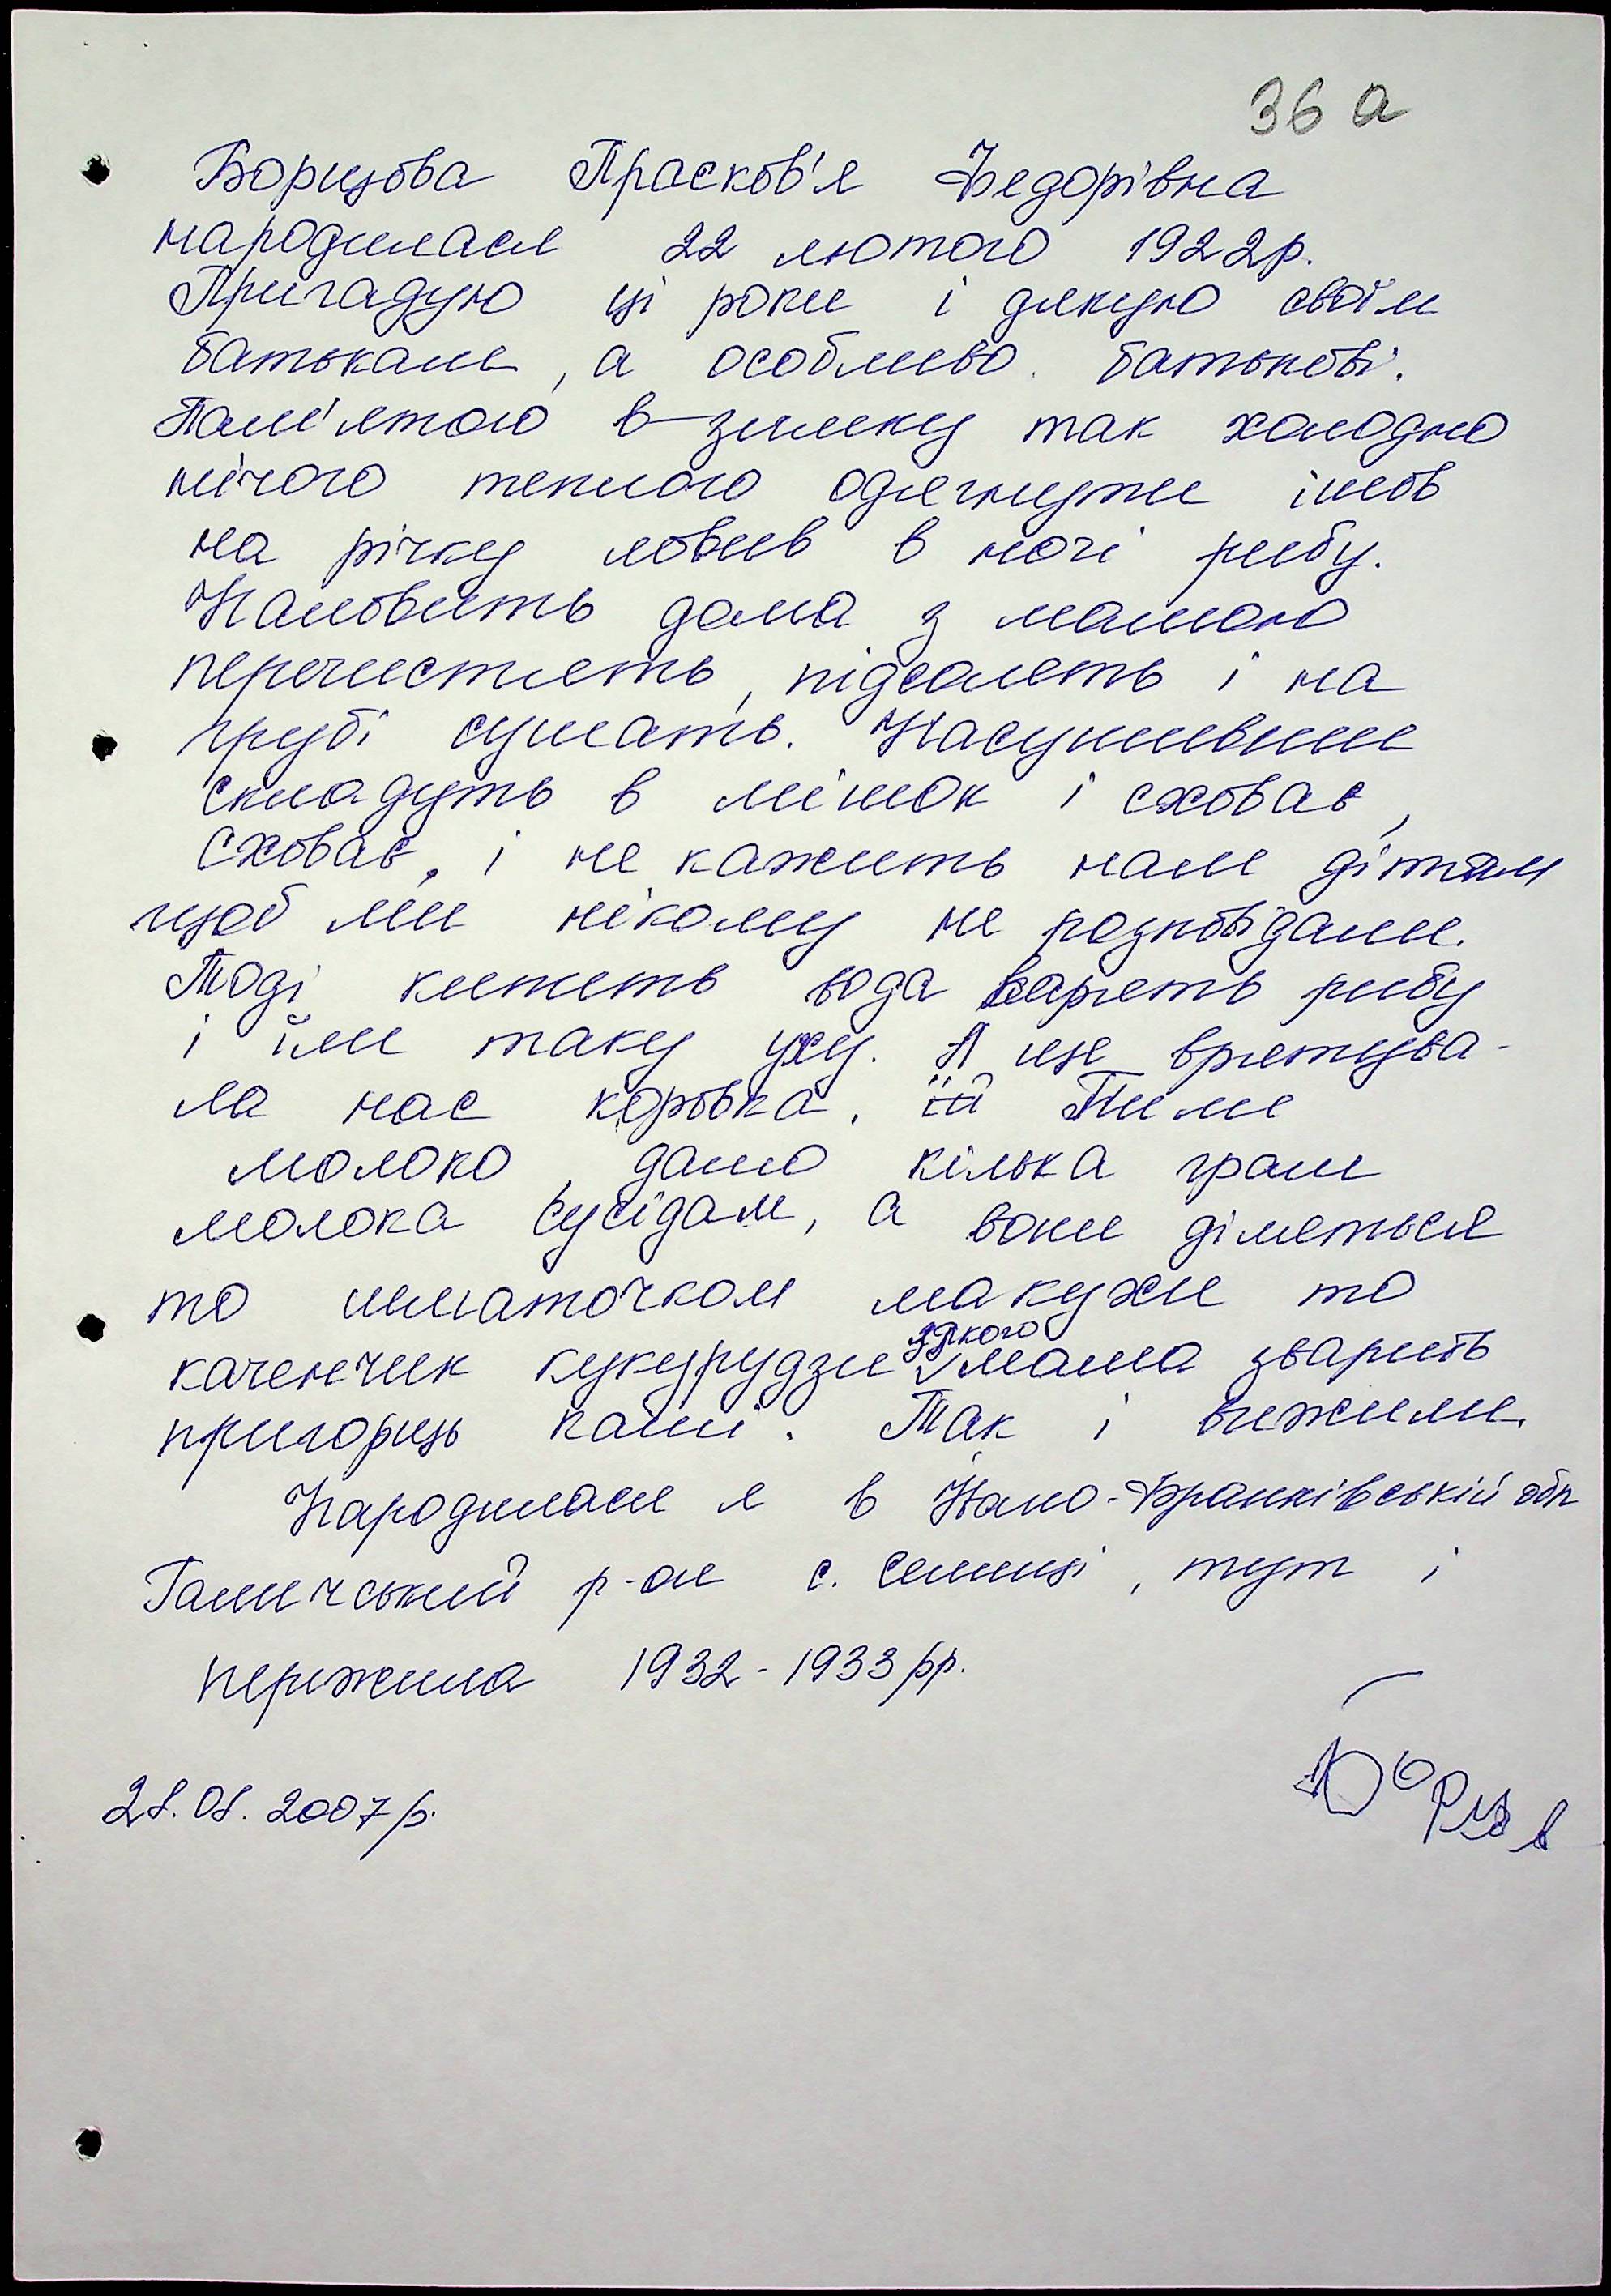 36 а
Борщова Прасков'я Федорівна
народилася 22 лютого 1922р.
Пригадую ці роки і дякую своїм
батькам, а особливо батькові.
Пам'ятаю в зимку так холодно
нічого теплого одягнуте ішов
на річку ловив в ночі рибу.
Наловить дома з мамою
перечистять, підсалять і на
грубі сушать. Насушивши
складуть в мішок і сховає,
сховає, і не кажить нам дітям
щоб ми нікому не розповідали.
Тоді кипить вода варять рибу
і їли таку уху. А ще врятува-
ла нас коровка. їй Пили
молоко, дамо кілька грам
молока сусідам, а вони діляться
то шматочком макухи то
каченчик кукурудзи з якого мама зварить
пригорщ каші. Так і вижили.
Народилася я в Івано-Франківській обл
Галичський р-он с. Семиці, тут і
пережила 1932-1933 рр.
28.08.2007р.
Борщ в